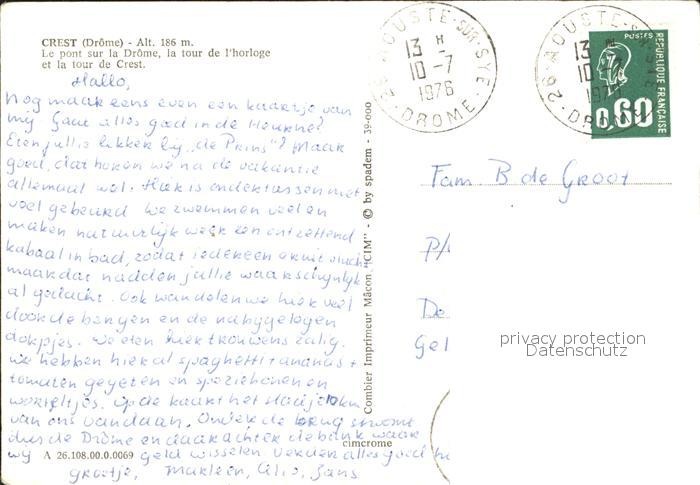 CREST (Drôme) - Alt. 186 m.
Le pont sur la Drôme, la tour de l'horloge
et la tour de Crest.
Hallo,
Nog maar eens even een kaartje van
my Gaat alles goed in de Heurne?
Eten jullie lekker bij "de Prins"? Maar
goed, dat horen we na de vakantie
allemaal wel. Hier is ondertussen niet
veel gebeurd we zwemmen veel en
maken natuurlijk weer een ontzettend
kabaal in bad, zodat iedereen eruit vlucht
maar dat hadden jullie waarschynlyk
al gedacht. Ook wandelen we hier veel
door de bergen en de nabygelegen
dorpjes. We eten hier trouwens zalig.
We hebben hier al spaghetti + ananas +
tomaten gegeten en speziebonen en
worteltjes. Op de kaart het stadje
van ons vandaan. Onder de brug stroomt
dus de Drôme en daarachter de bank waar
wij geld wisselen verder alles goed
groetje, Marleen,
26 - AOUSTE-SUR-SYE
13 H
10 -7
1976
DROME
26 - AOUSTE-SUR-SYE
13 H
10 -7
1976
DROME
POSTES
REPUBLIQUE FRANÇAISE
0,60
Fam B de Groot
P/
De
Gel
privacy protection
Datenschutz
Combier Imprimeur Mâcon "CIM" - © by spadem - 39-000
cimcrome
A 26.108.00.0.0069